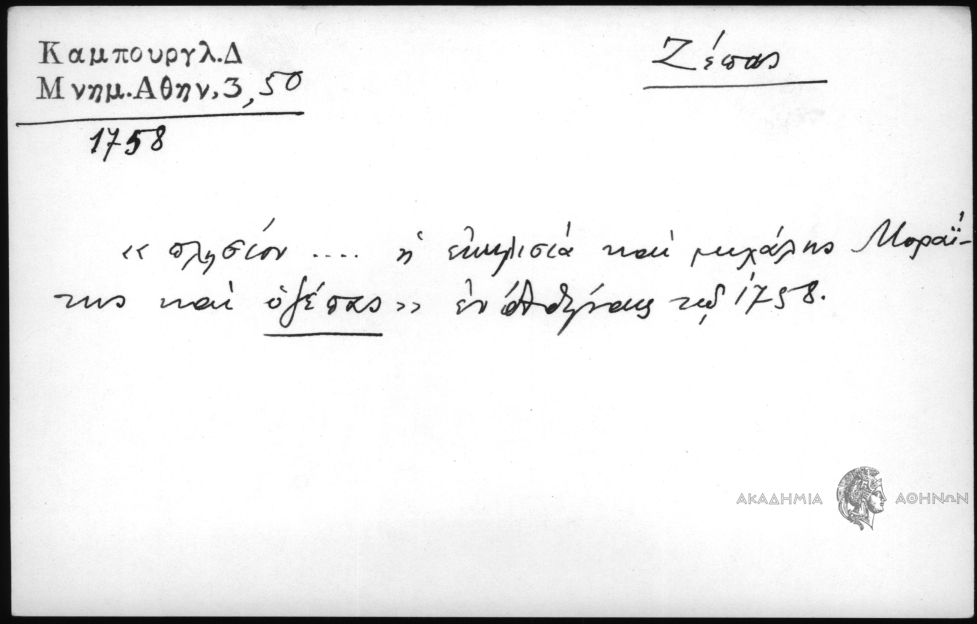 Καμπουργλ.Δ
Μνημ.Αθην.,3,50
1758
Ζέπας
« πλησίον .... ἡ ἐκκλισιά καί μιχάλης Μοραΐ-
της καί ὁ ζέπας» ἐν Ἀθήναις τῷ 1758.
ΑΚΑΔΗΜΙΑ ΑΘΗΝΩΝ